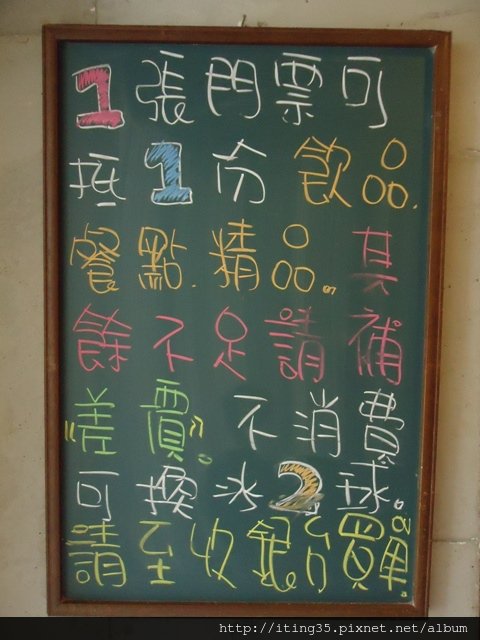 1張門票可
抵1份飲品.
餐點.精品。其
餘不足請補
"差價"。不消費
可換冰2球。
請至收銀台買單。
http://iting35.pixnet.net/album